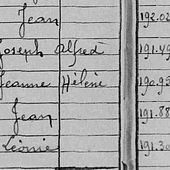 Jean 192.02
Joseph Alfred 191.49
Jeanne Hélène 190.95
Jean 191.88
Léonie 191.30